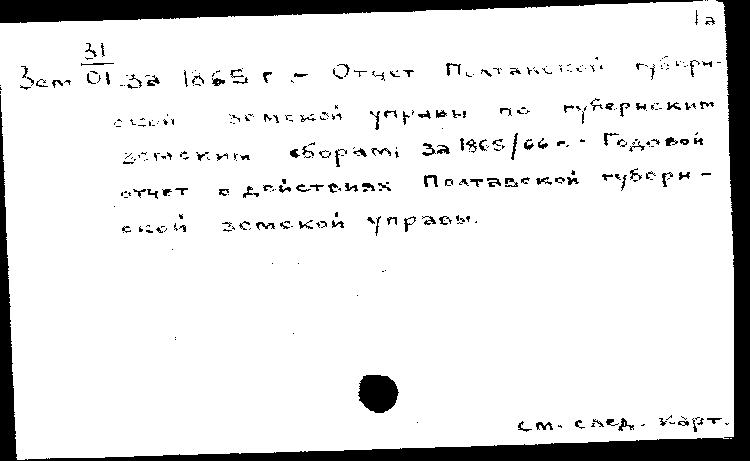 1а
31
Зем 01 за 1865 г.- Отчет Полтавской губерн-
ской земской управы по губернским
земским сборам за 1865/66 г.- Годовой
отчет о действиях Полтавской губерн-
ской земской управы.
см. след. карт.